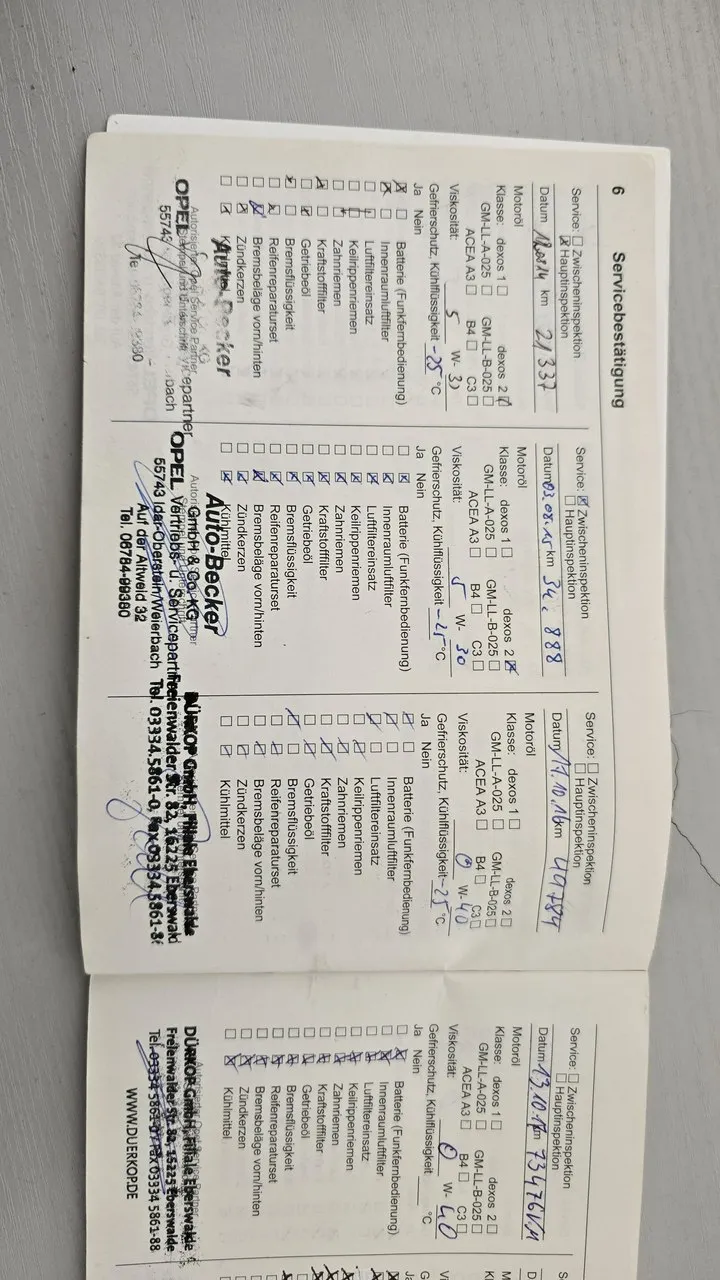 6
Servicebestätigung
Service: Zwischeninspektion
Hauptinspektion
Datum km 21337
Motoröl
Klasse: dexos 1 dexos 2
GM-LL-A-025 GM-LL-B-025
ACEA A3 B4 C3
Viskosität: 5 W- 30
Gefrierschutz, Kühlflüssigkeit -25 °C
Ja Nein
Batterie (Funkfernbedienung)
Innenraumluftfilter
Luftfiltereinsatz
Keilrippenriemen
Zahnriemen
Kraftstofffilter
Getriebeöl
Bremsflüssigkeit
Reifenreparaturset
Bremsbeläge vorn/hinten
Zündkerzen
Auto-Becker
OPEL
55743
Service: Zwischeninspektion
Hauptinspektion
Datum 03.08.15 km 34.888
Motoröl
Klasse: dexos 1 dexos 2
GM-LL-A-025 GM-LL-B-025
ACEA A3 B4 C3
Viskosität: 5 W- 30
Gefrierschutz, Kühlflüssigkeit -25 °C
Ja Nein
Batterie (Funkfernbedienung)
Innenraumluftfilter
Luftfiltereinsatz
Keilrippenriemen
Zahnriemen
Kraftstofffilter
Getriebeöl
Bremsflüssigkeit
Reifenreparaturset
Bremsbeläge vorn/hinten
Zündkerzen
Kühlmittel
Auto-Becker
GmbH & Co. KG
OPEL Vertriebs u. Servicepartner
55743 Idar-Oberstein/Weierbach
Auf der Altweid 32
Tel. 06784-99380
Service: Zwischeninspektion
Hauptinspektion
Datum 19.10.16 km 49784
Motoröl
Klasse: dexos 1 dexos 2
GM-LL-A-025 GM-LL-B-025
ACEA A3 B4 C3
Viskosität: 0 W- 40
Gefrierschutz, Kühlflüssigkeit -25 °C
Ja Nein
Batterie (Funkfernbedienung)
Innenraumluftfilter
Luftfiltereinsatz
Keilrippenriemen
Zahnriemen
Kraftstofffilter
Getriebeöl
Bremsflüssigkeit
Reifenreparaturset
Bremsbeläge vorn/hinten
Zündkerzen
Kühlmittel
DÜRKOP GmbH, Filiale Eberswalde
Freienwalder Str. 82, 16225 Eberswald
Tel. 03334.5861-0, Fax 03334.5861-8
Service: Zwischeninspektion
Hauptinspektion
Datum 13.10.17 km 73476
Motoröl
Klasse: dexos 1 dexos 2
GM-LL-A-025 GM-LL-B-025
ACEA A3 B4 C3
Viskosität: 0 W- 40
Gefrierschutz, Kühlflüssigkeit °C
Ja Nein
Batterie (Funkfernbedienung)
Innenraumluftfilter
Luftfiltereinsatz
Keilrippenriemen
Zahnriemen
Kraftstofffilter
Getriebeöl
Bremsflüssigkeit
Reifenreparaturset
Bremsbeläge vorn/hinten
Zündkerzen
Kühlmittel
DÜRKOP GmbH, Filiale Eberswalde
Freienwalder Str. 82, 16225 Eberswalde
Tel. 03334 5861-0, Fax 03334 5861-88
WWW.DUERKOP.DE